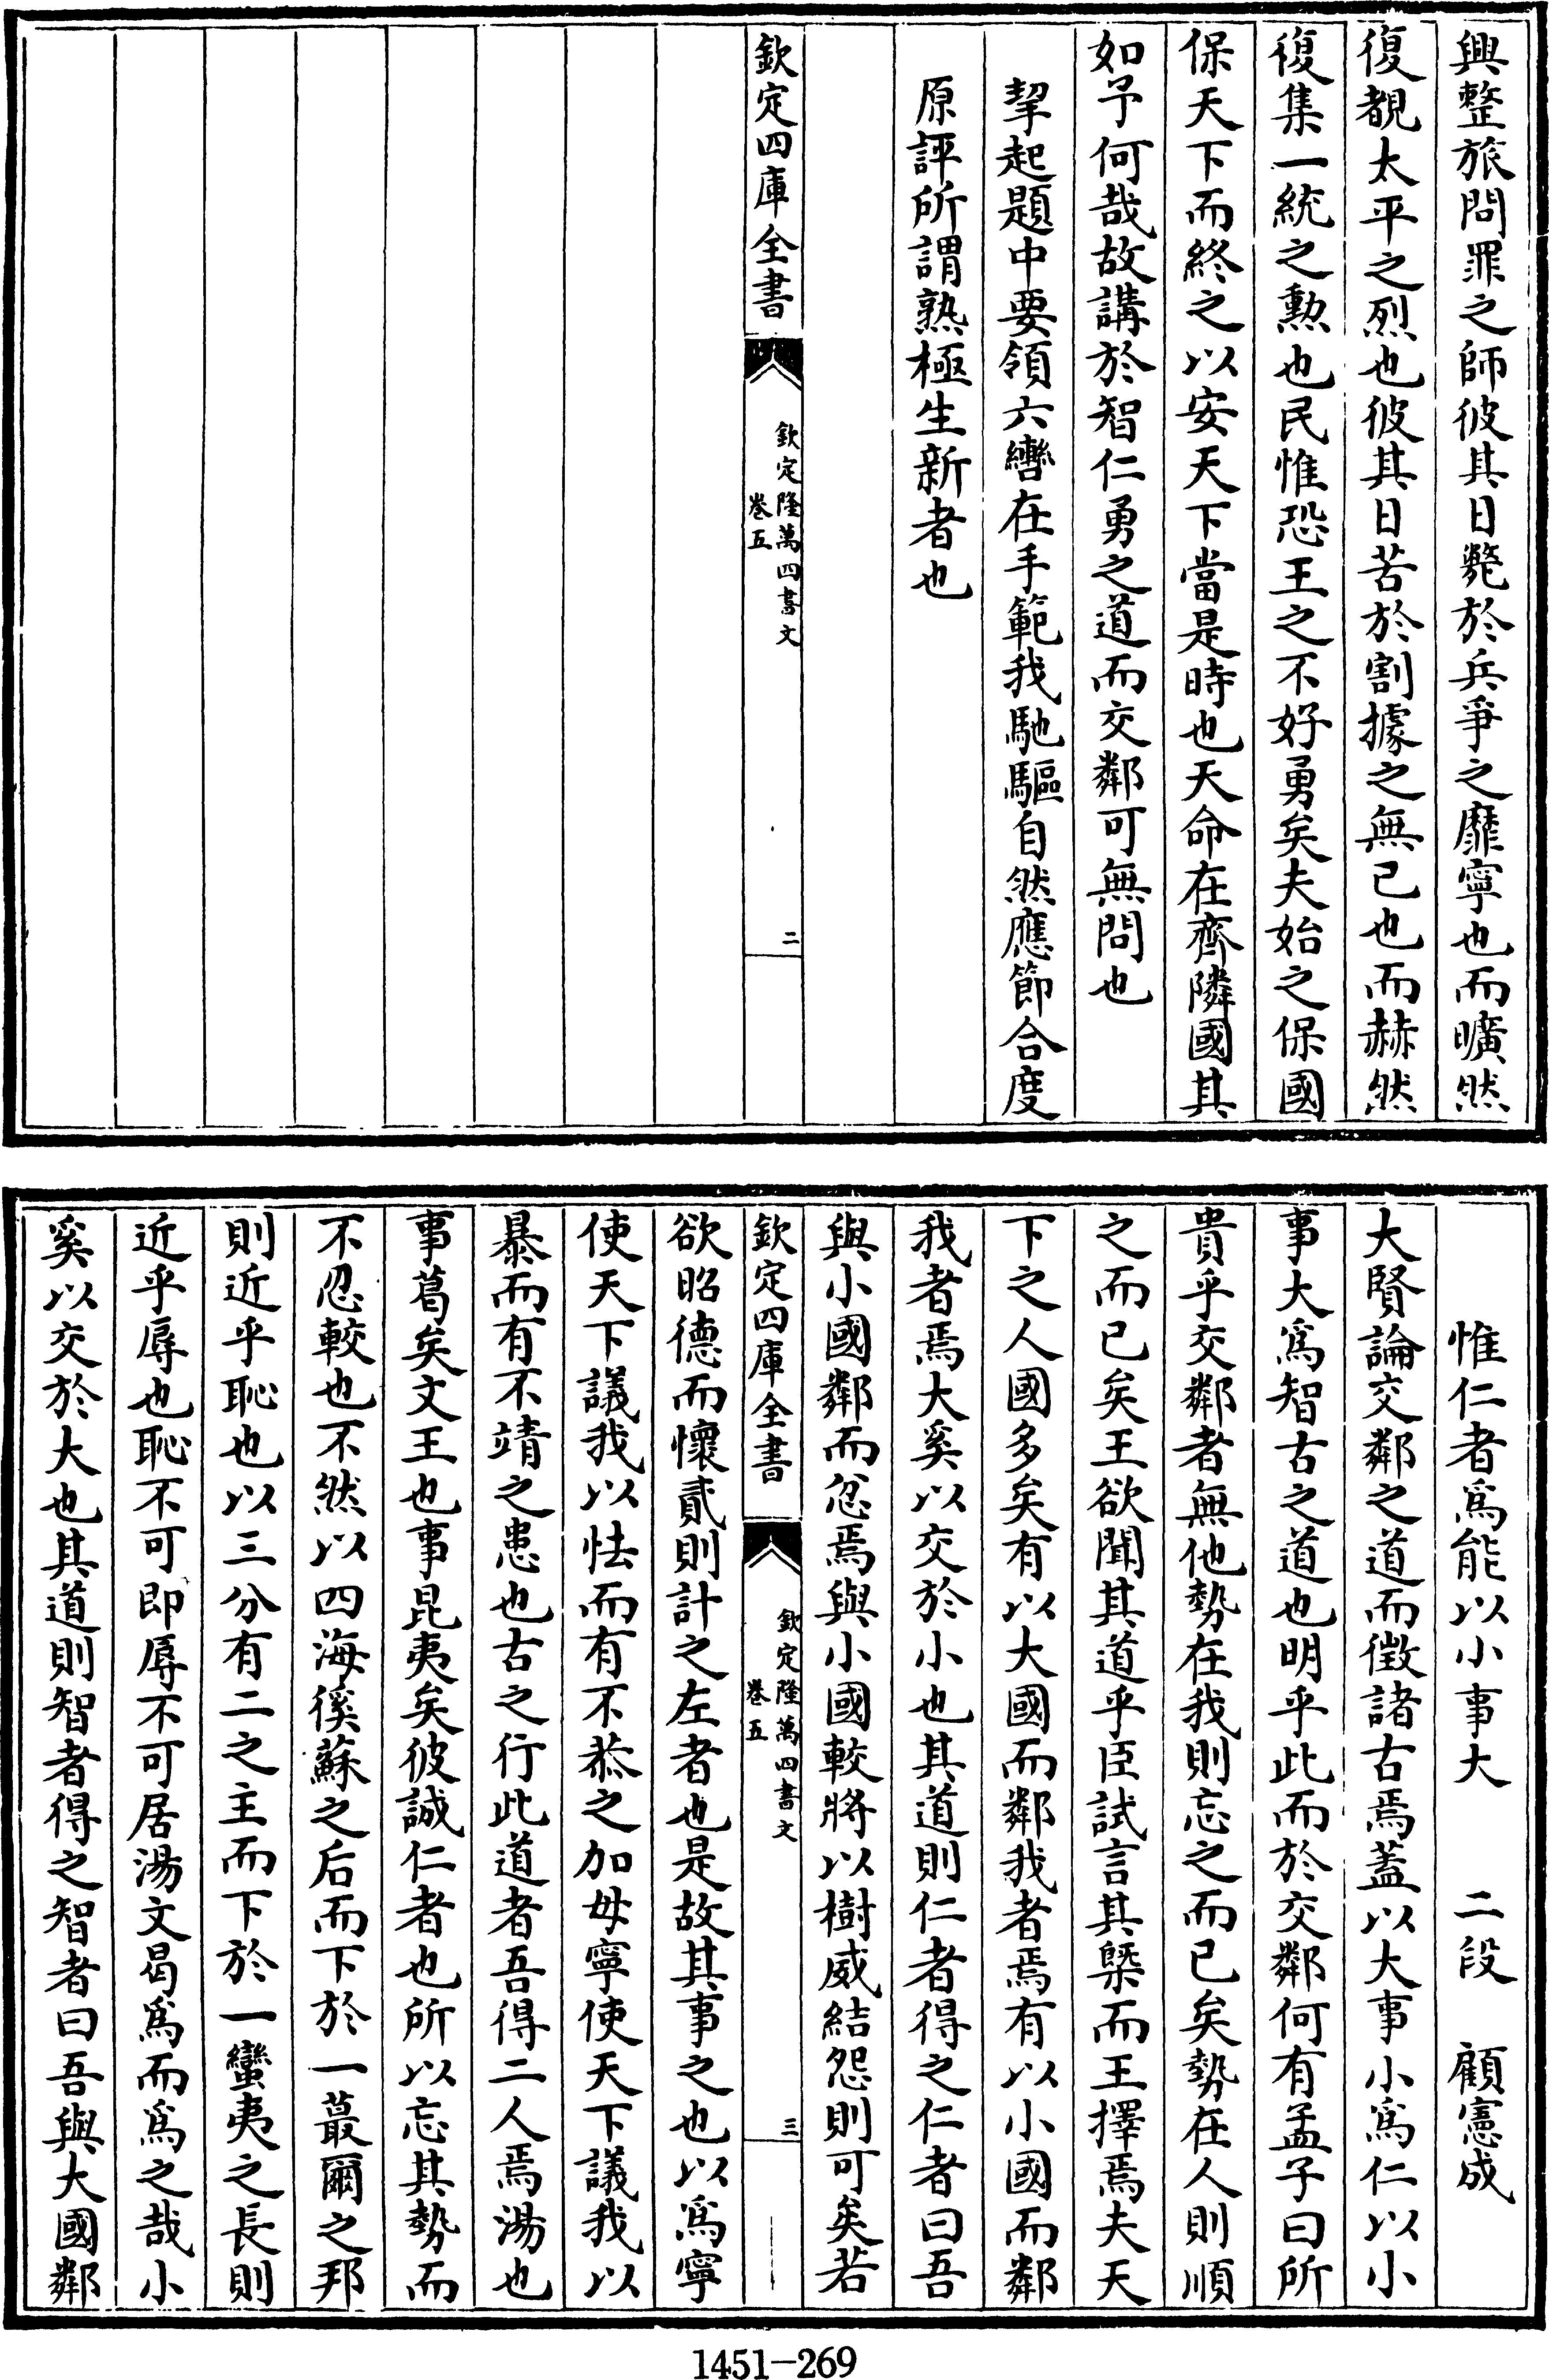 興整旅問罪之師彼其日斃於兵爭之靡寧也而曠然
復覩太平之烈也彼其日苦於割據之無已也而赫然
復集一統之勲也民惟恐王之不好勇矣夫始之保國
保天下而終之以安天下當是時也天命在齊隣國其
如予何哉故講於智仁勇之道而交鄰可無問也
挈起題中要領六轡在手範我馳驅自然應節合度
原評所謂熟極生新者也
欽定四庫全書
欽定隆萬四書文
卷五
二
惟仁者為能以小事大 二段 顧憲成
大賢論交鄰之道而徴諸古焉葢以大事小為仁以小
事大為智古之道也明乎此而於交鄰何有孟子曰所
貴乎交鄰者無他勢在我則忘之而已矣勢在人則順
之而已矣王欲聞其道乎臣試言其槩而王擇焉夫天
下之人國多矣有以大國而鄰我者焉有以小國而鄰
我者焉大奚以交於小也其道則仁者得之仁者曰吾
與小國鄰而忿焉與小國較將以樹威結怨則可矣若
欽定四庫全書
欽定隆萬四書文
卷五
三
欲昭德而懷貳則計之左者也是故其事之也以為寧
使天下議我以怯而有不恭之加毋寧使天下議我以
暴而有不靖之患也古之行此道者吾得二人焉湯也
事葛矣文王也事昆夷矣彼誠仁者也所以忘其勢而
不忍較也不然以四海徯蘇之后而下於一蕞爾之邦
則近乎恥也以三分有二之主而下於一蠻夷之長則
近乎辱也恥不可即辱不可居湯文曷為而為之哉小
奚以交於大也其道則智者得之智者曰吾與大國鄰
1451-269